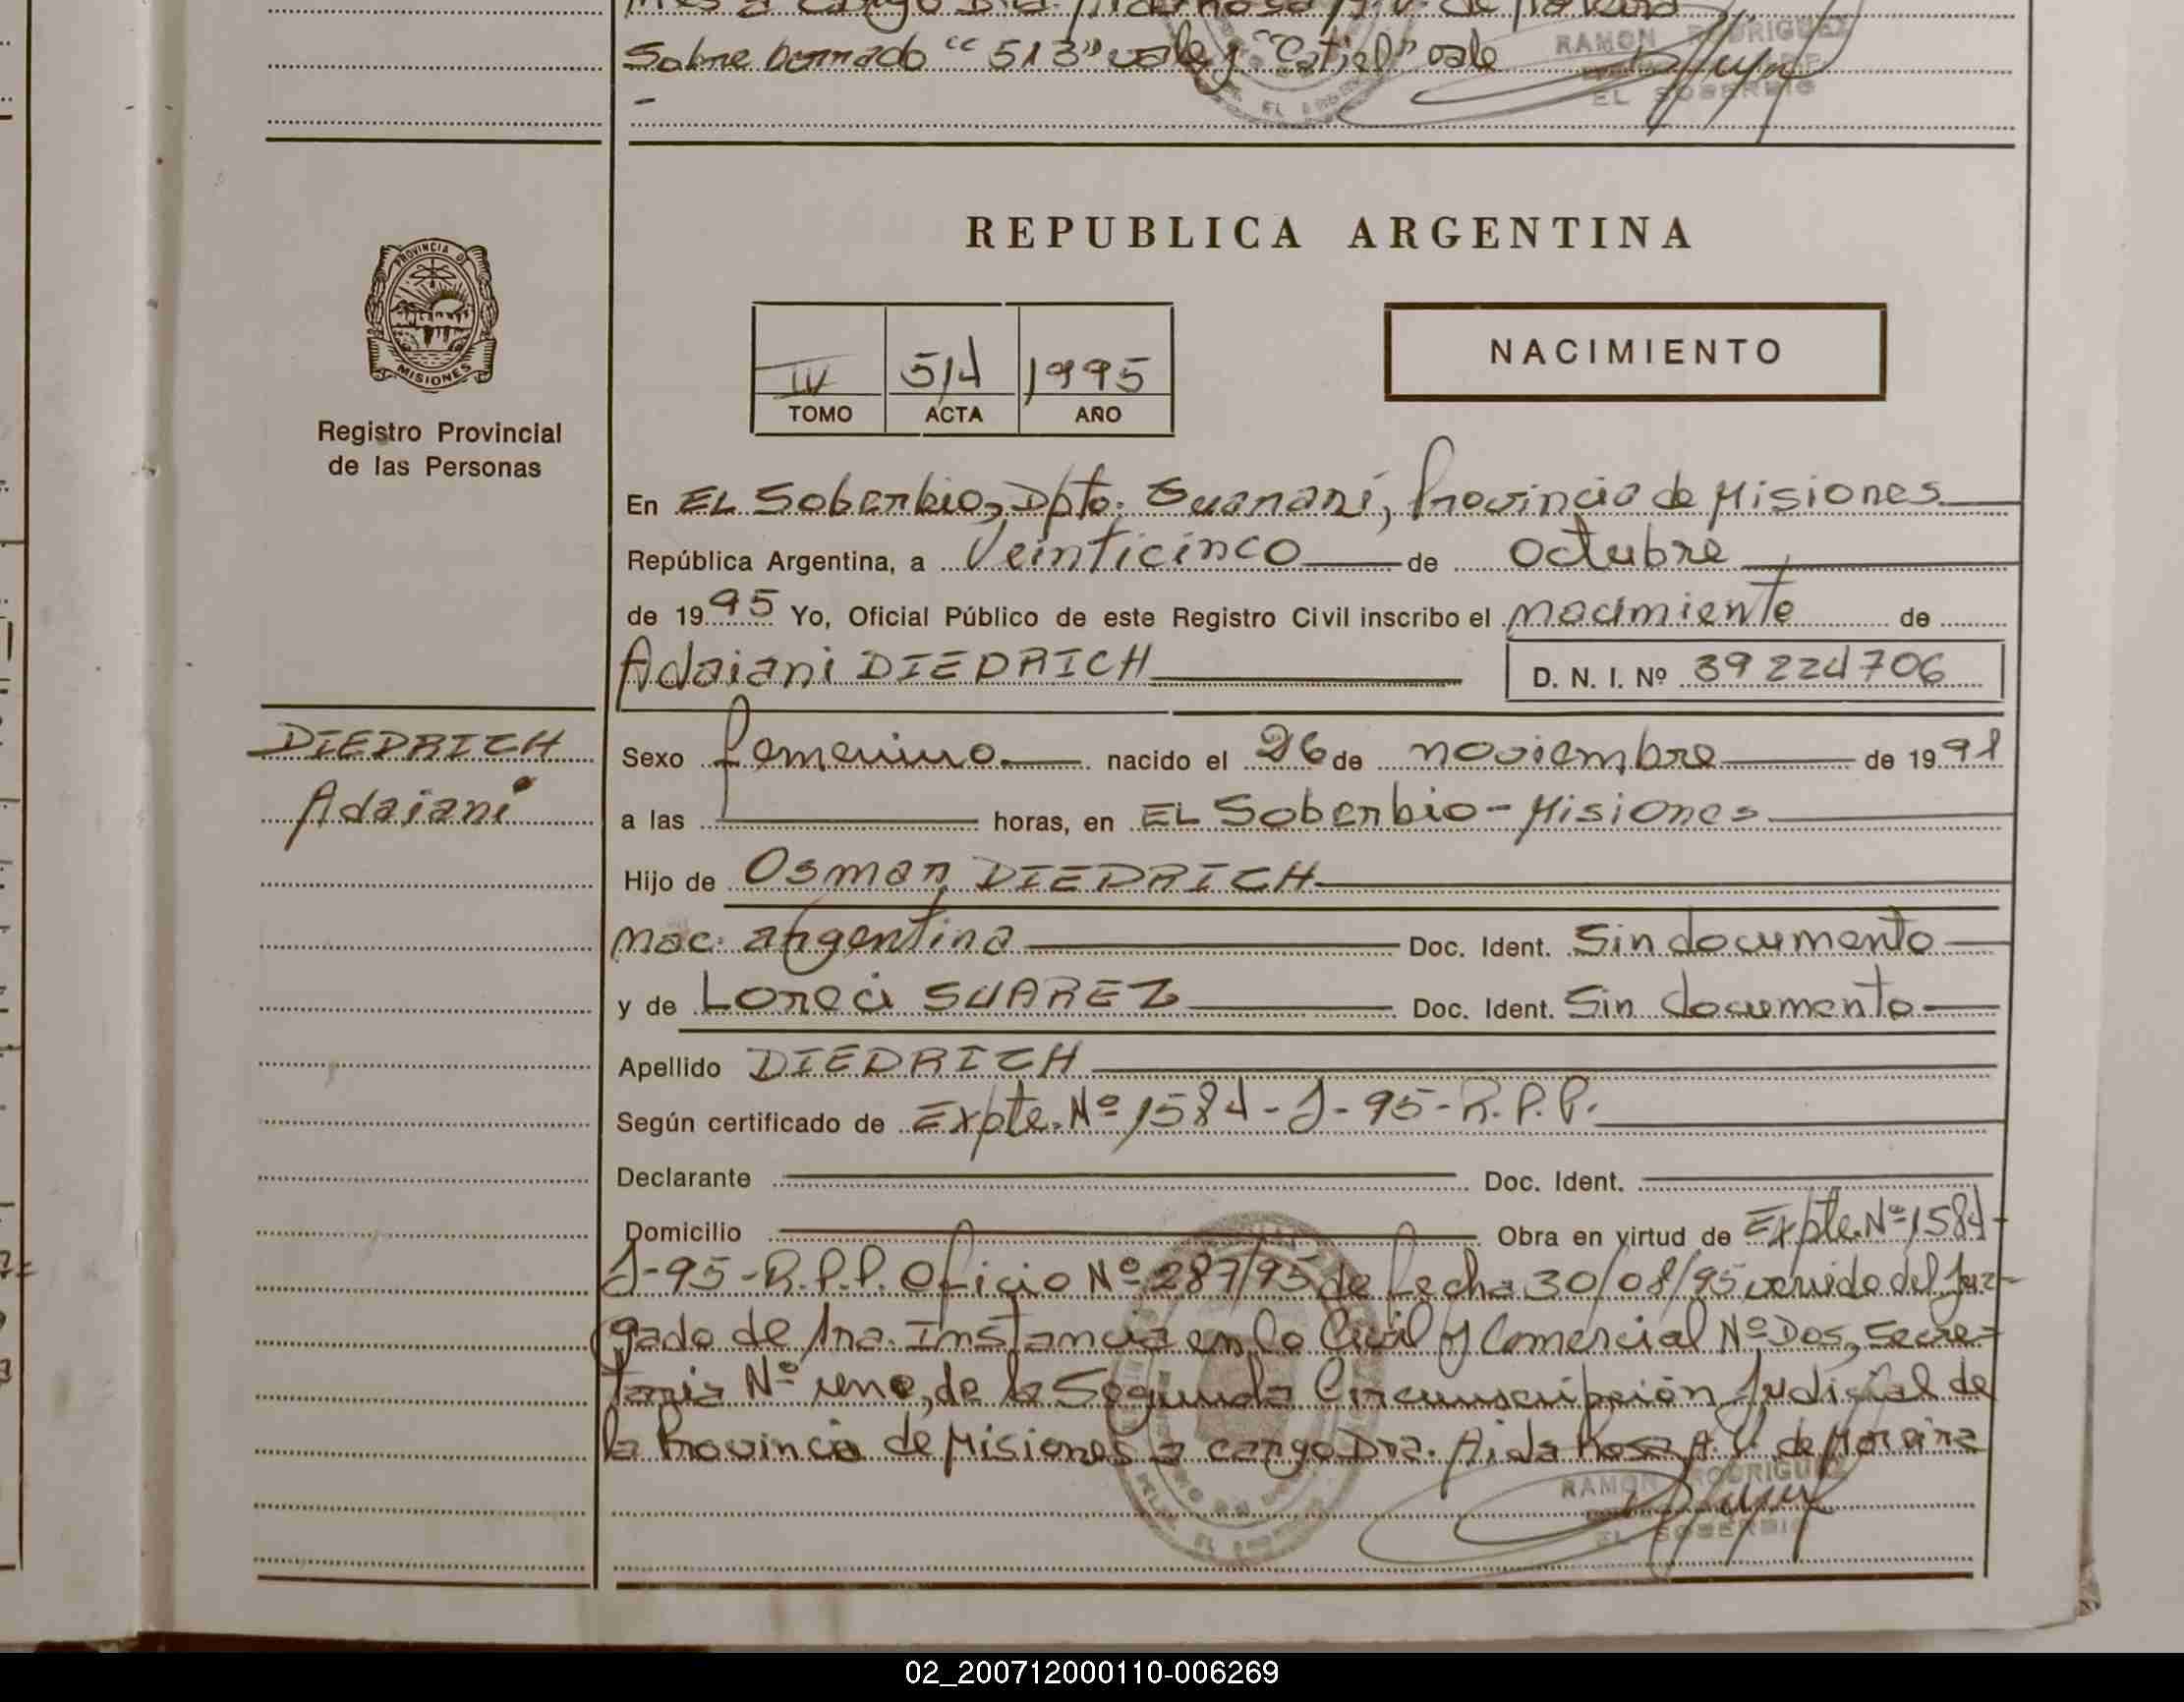 Sobre borrado "513" vale y "Catiel" vale
RAMON RODRIGUEZ
EL SOBERBIO
REPUBLICA ARGENTINA
PROVINCIA DE
MISIONES
Registro Provincial
de las Personas
IV 514 1995
TOMO ACTA AÑO
NACIMIENTO
En EL Soberbio, Dpto. Guaraní, Provincia de Misiones
República Argentina, a Veinticinco de octubre
de 1995 Yo, Oficial Público de este Registro Civil inscribo el nacimiento de
Adaiani DIEDRICH D. N. I. Nº 39224706
DIEDRICH
Adaiani
Sexo femenino nacido el 26 de noviembre de 1991
a las horas, en EL Soberbio - Misiones
Hijo de Osmar DIEDRICH
nac. argentina Doc. Ident. Sin documento
y de Loreci SUAREZ Doc. Ident. Sin documento
Apellido DIEDRICH
Según certificado de Expte. Nº 1584-J-95-R.P.P.
Declarante Doc. Ident.
Domicilio Obra en virtud de Expte. Nº 1584-
J-95-R.P.P. Oficio Nº 287/95 de fecha 30/08/95 venido del Juz-
gado de 1ra. Instancia en lo Civil y Comercial Nº Dos, Secre-
taria Nº uno, de la Segunda Circunscripción Judicial de
la Provincia de Misiones a cargo Dra. Aida Rosa A. V. de Moreira
RAMON RODRIGUEZ
EL SOBERBIO
02_200712000110-006269